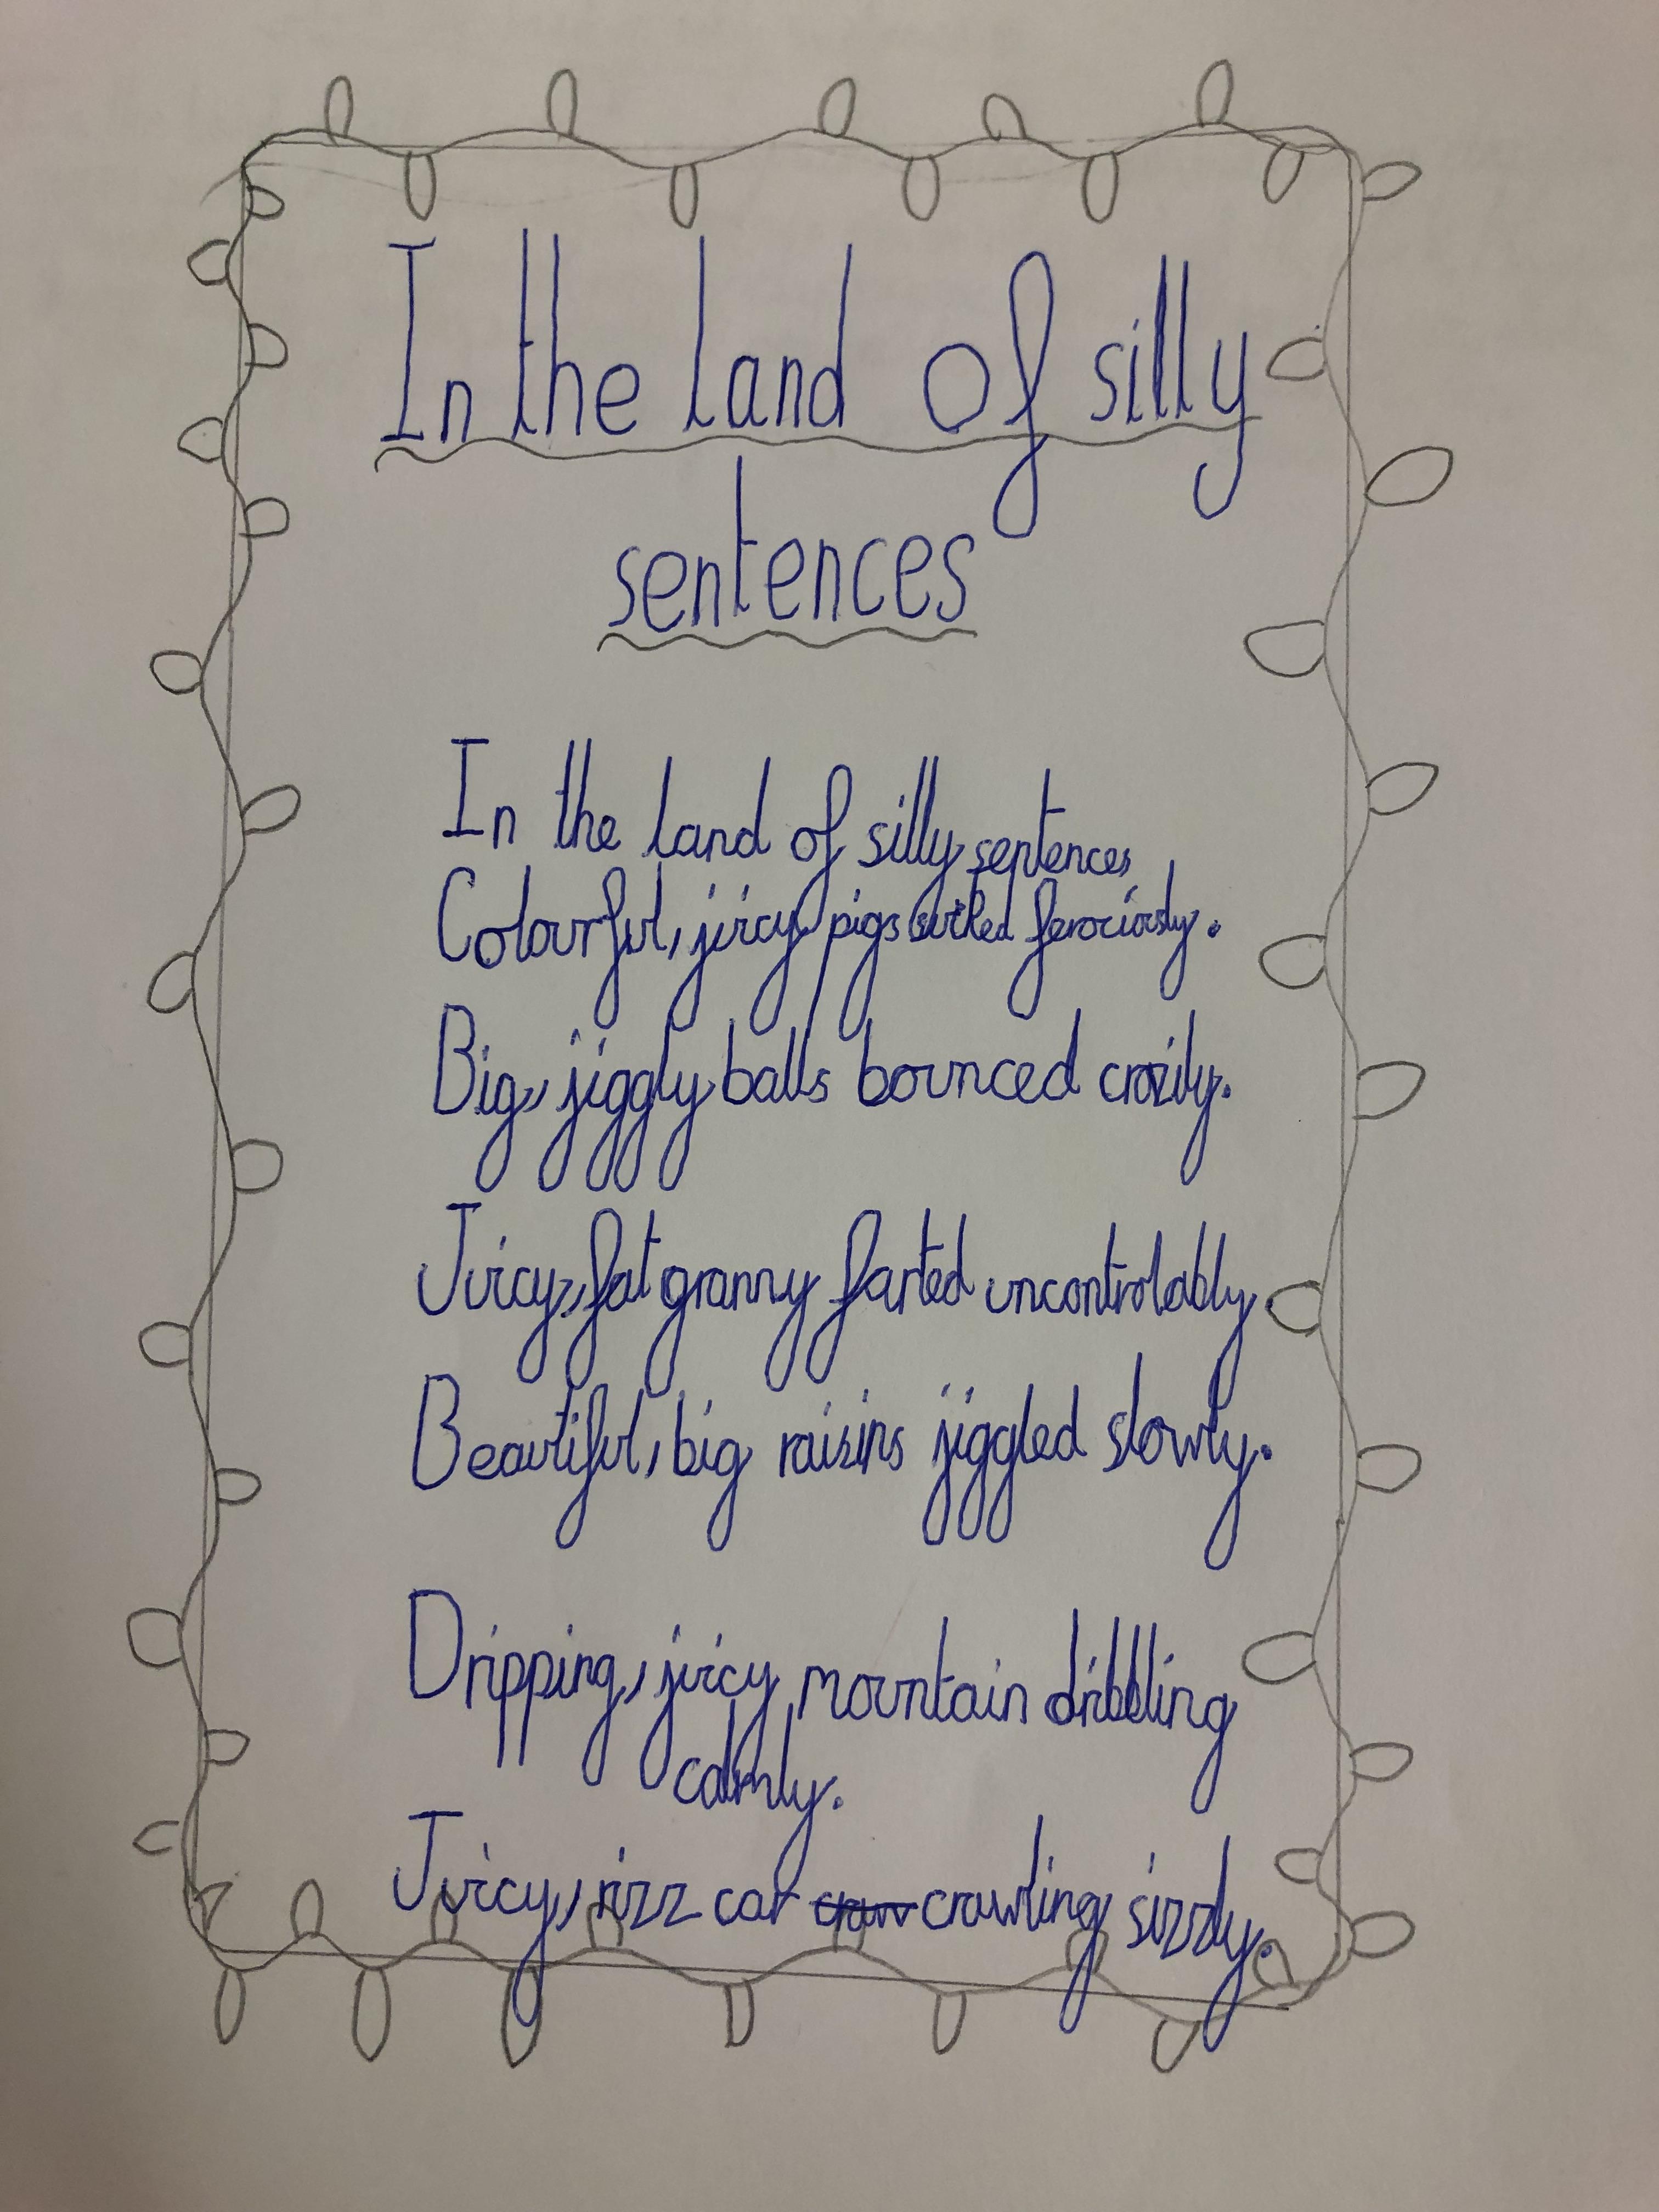 In the land of silly
sentences
In the land of silly sentences
Colourful, juicy pigs ferociously.
Big, jiggly balls bounced crazily.
Juicy, fat granny farted uncontrolably
Beautiful, big raisins jiggled slowly.
Dripping, juicy mountain dribbling
calmly.
Juicy, rizz car craw crawling sizzly.